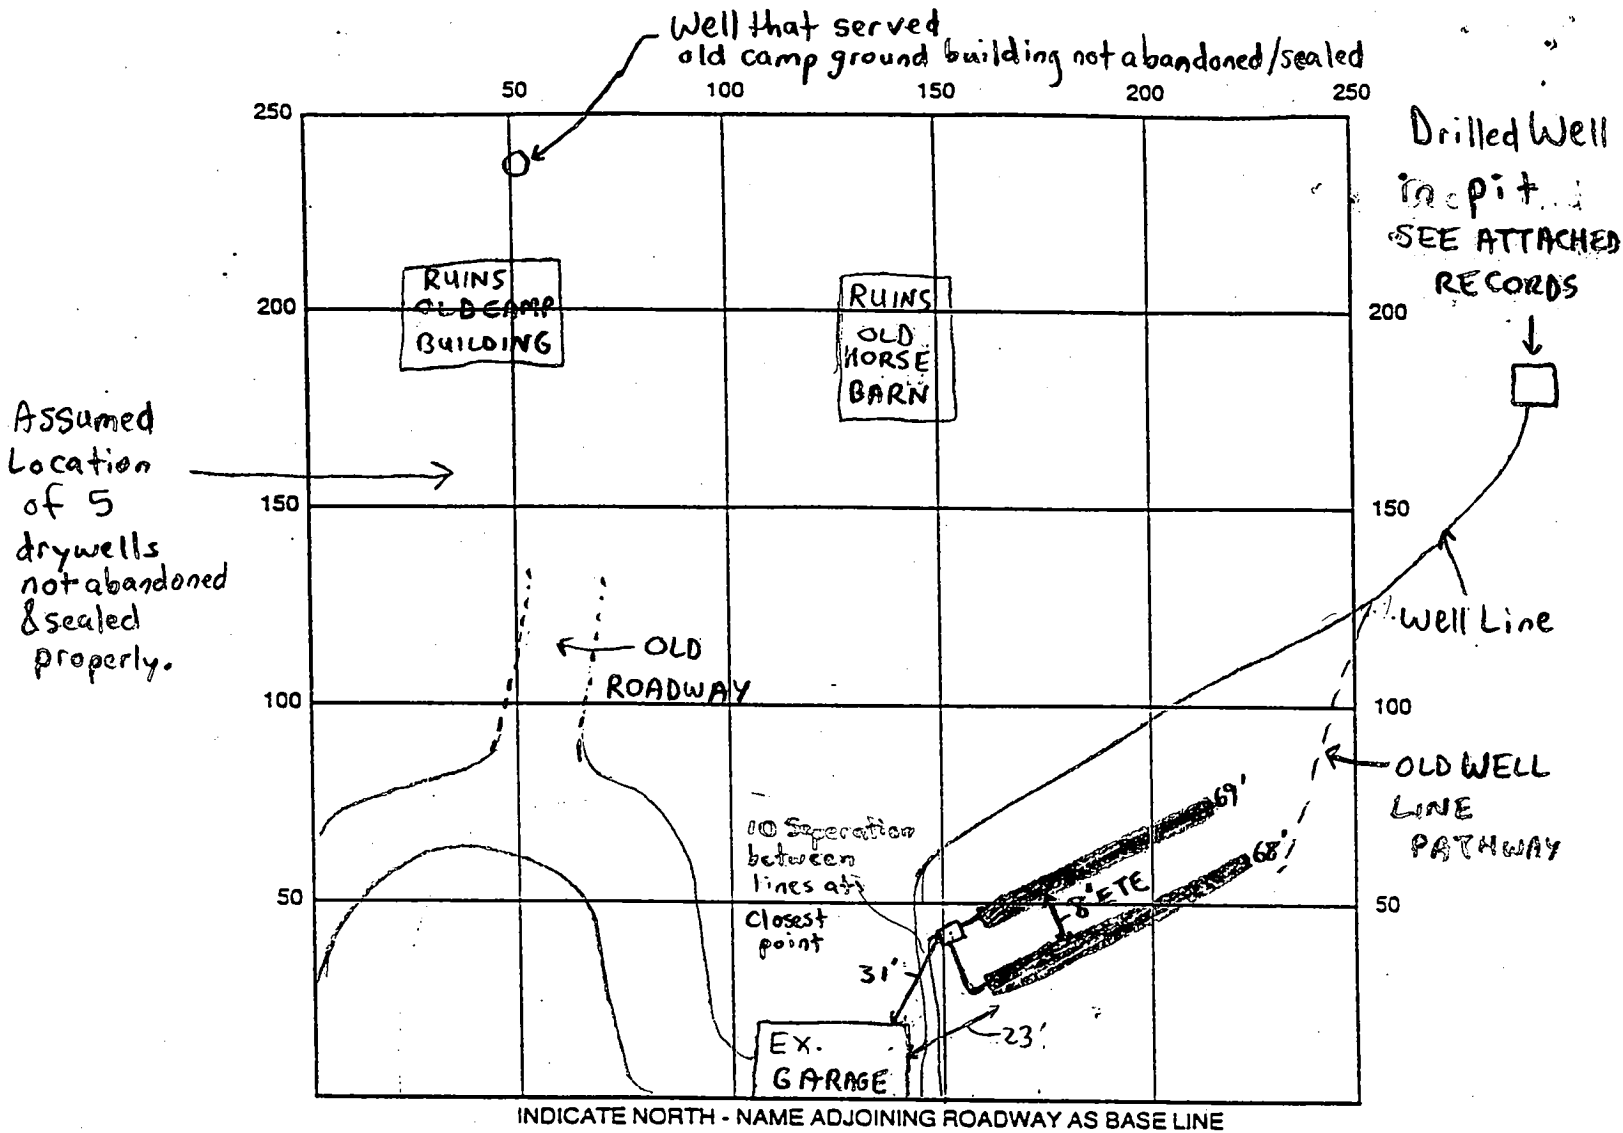 Well that served
old camp ground building not abandoned/sealed
50 100 150 200 250
250
Drilled Well
in pit
SEE ATTACHED
RECORDS
RUINS
OLD CAMP
BUILDING
RUINS
OLD
HORSE
BARN
200 200
Assumed
Location
of 5
drywells
not abandoned
& sealed
properly.
150 150
Well Line
OLD
ROADWAY
100 100
OLD WELL
LINE
PATHWAY
69'
68'
8' ETE
10 Seperation
between
lines at
Closest
point
50 50
31'
23'
EX.
GARAGE
INDICATE NORTH - NAME ADJOINING ROADWAY AS BASE LINE